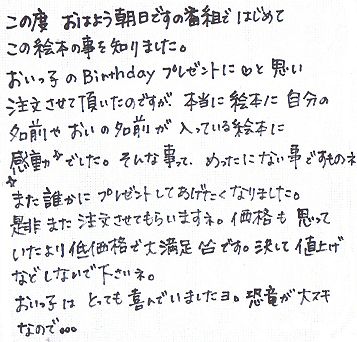 この度 おはよう朝日ですの番組で はじめて
この絵本の事を知りました。
おいっ子のBirthday プレゼントに♡と思い
注文させて頂いたのですが 本当に絵本に 自分の
名前や おいの名前が 入っている絵本に
感動 でした。そんな事って、めったにない事ですものネ
また誰かに プレゼントしてあげたくなりました。
是非 また 注文させてもらいますネ。価格も 思って
いたより低価格で大満足 です。決して 値上げ
などしないで下さいネ。
おいっ子は とっても 喜んでいましたヨ。恐竜が大スキ
なので•••